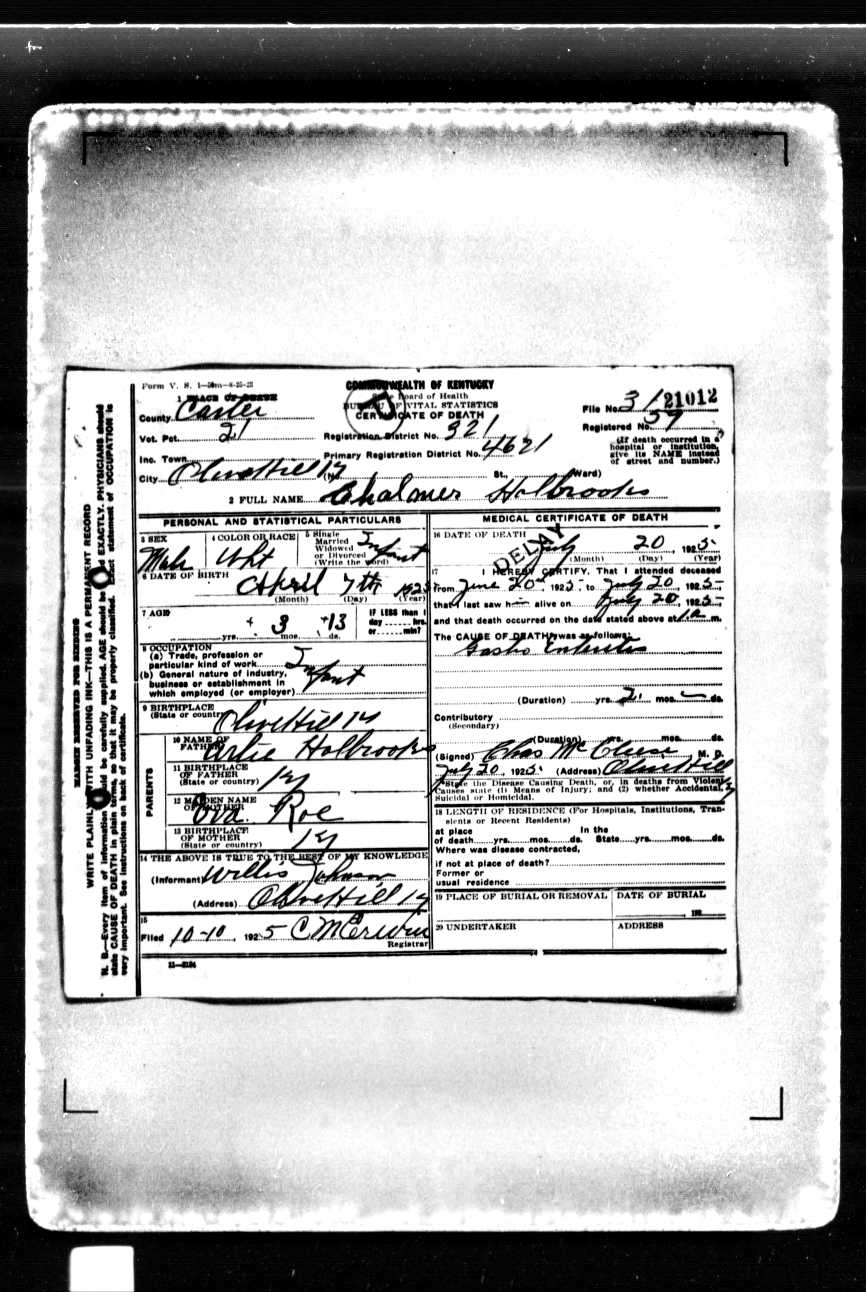 Form V. S. 1—50m—8-25-22
COMMONWEALTH OF KENTUCKY
Board of Health
BUREAU OF VITAL STATISTICS
CERTIFICATE OF DEATH
File No. 31 21012
Registered No. 59
(If death occurred in a hospital or institution, give its NAME instead of street and number.)
1 PLACE OF DEATH
County Carter
Vot. Pct. 21
Registration District No. 321
Inc. Town
Primary Registration District No. 4621
City Olive Hill Ky (No. St., Ward)
2 FULL NAME Chalmer Holbrooks
PERSONAL AND STATISTICAL PARTICULARS
3 SEX Male
4 COLOR OR RACE Wht
5 Single Married Widowed or Divorced (Write the word) Infant
6 DATE OF BIRTH April 7th 1925
(Month) (Day) (Year)
7 AGE
yrs. 3 mos. 13 ds.
IF LESS than 1 day hrs. or min?
8 OCCUPATION
(a) Trade, profession or particular kind of work Infant
(b) General nature of industry, business or establishment in which employed (or employer)
9 BIRTHPLACE
(State or country) Olive Hill Ky
PARENTS
10 NAME OF FATHER Arlie Holbrooks
11 BIRTHPLACE OF FATHER
(State or country) Ky
12 MAIDEN NAME OF MOTHER Eva Roe
13 BIRTHPLACE OF MOTHER
(State or country) Ky
14 THE ABOVE IS TRUE TO THE BEST OF MY KNOWLEDGE
(Informant) Willis Johnson
(Address) Olive Hill Ky
15
Filed 10-10, 1925 C M Erwin
Registrar
11—3184
MEDICAL CERTIFICATE OF DEATH
16 DATE OF DEATH
DELAY
July 20, 1925
(Month) (Day) (Year)
17 I HEREBY CERTIFY, That I attended deceased
from June 20, 1925, to July 20, 1925,
that I last saw h alive on July 20, 1925,
and that death occurred on the date stated above at m.
The CAUSE OF DEATH was as follows:
Gastro Enteritis
(Duration) yrs. 2 mos. ds.
Contributory
(Secondary)
(Duration) yrs. mos. ds.
(Signed) Chas McCleese M. D.
July 20, 1925 (Address) Olive Hill
State the Disease Causing Death, or, in deaths from Violent Causes state (1) Means of Injury; and (2) whether Accidental, Suicidal or Homicidal.
18 LENGTH OF RESIDENCE (For Hospitals, Institutions, Transients or Recent Residents)
at place of death yrs. mos. ds. In the State yrs. mos. ds.
Where was disease contracted,
if not at place of death?
Former or usual residence
19 PLACE OF BURIAL OR REMOVAL
DATE OF BURIAL
192
20 UNDERTAKER
ADDRESS
MARGIN RESERVED FOR BINDING
WRITE PLAINLY WITH UNFADING INK—THIS IS A PERMANENT RECORD
N. B.—Every item of information should be carefully supplied. AGE should be EXACTLY. PHYSICIANS should
state CAUSE OF DEATH in plain terms, so that it may be properly classified. Exact statement of OCCUPATION is
very important. See instructions on back of certificate.